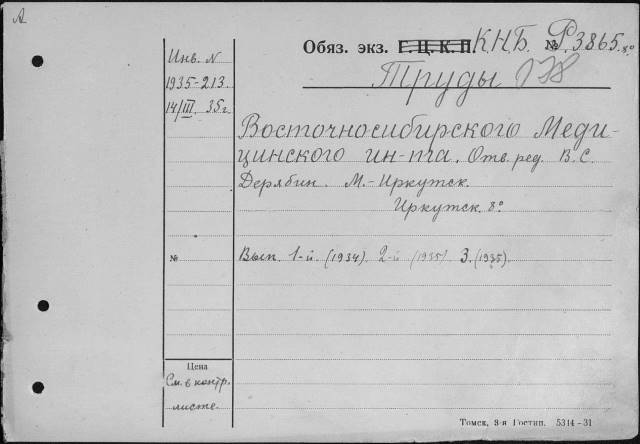 А
Обяз. экз. Г. Ц. К. П. К.Н.Б. № Р 3865. 8º
Инв. N
1935-213
14/III 35г.
Труды 138
Восточносибирского Меди-
цинского ин-та. Отв. ред. В. С.
Дерябин. М.-Иркутск.
Иркутск. 8º.
№
Вып. 1-й. (1934). 2-й (1935). 3. (1935).
Цена
См. в контр.
листе.
Томск, 3-я Гостип. 5314-31